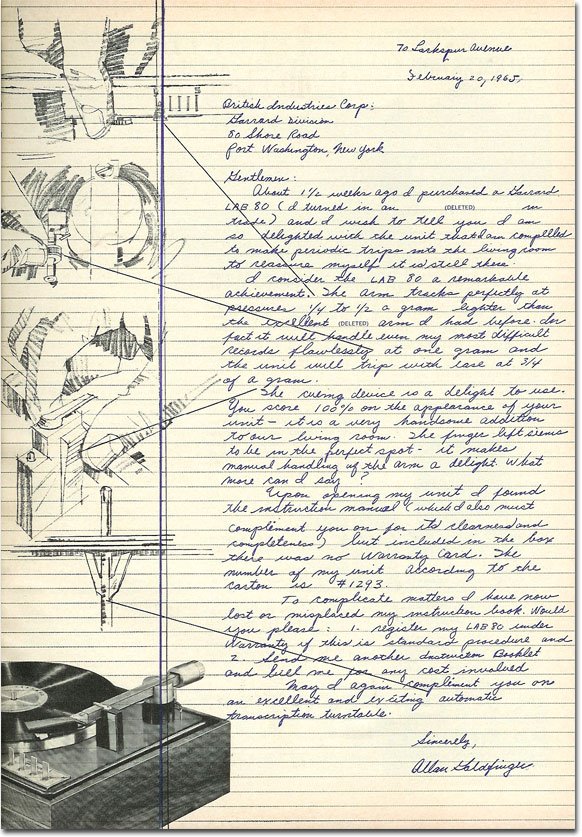 70 Larkspur Avenue
February 20, 1965.
British Industries Corp:
Garrard Division
80 Shore Road
Port Washington, New York
Gentlemen:
About 1½ weeks ago I purchased a Garrard
LAB 80 (I turned in an (DELETED) in
trade) and I wish to tell you I am
so delighted with the unit that I am compelled
to make periodic trips into the living room
to reassure myself it is still there.
I consider the LAB 80 a remarkable
achievement. The arm tracks perfectly at
pressures 1/4 to 1/2 a gram lighter than
the excellent (DELETED) arm I had before. In
fact it will handle even my most difficult
records flawlessly at one gram and
the unit will trip with ease at 3/4
of a gram.
The cueing device is a delight to use.
You score 100% on the appearance of your
unit - it is a very handsome addition
to our living room. The finger lift seems
to be in the perfect spot - it makes
manual handling of the arm a delight. What
more can I say?
Upon opening my unit I found
the instruction manual (which I also must
complement you on for its clearness and
completeness) but included in the box
there was no Warranty Card. The
number of my unit according to the
carton is #1293.
To complicate matters I have now
lost or misplaced my instruction book. Would
you please: 1. register my LAB 80 under
Warranty if this is standard procedure and
2. Send me another Instruction Booklet
and bill me for any cost involved
May I again complement you on
an excellent and exciting automatic
transcription turntable.
Sincerely,
Allan Goldfinger